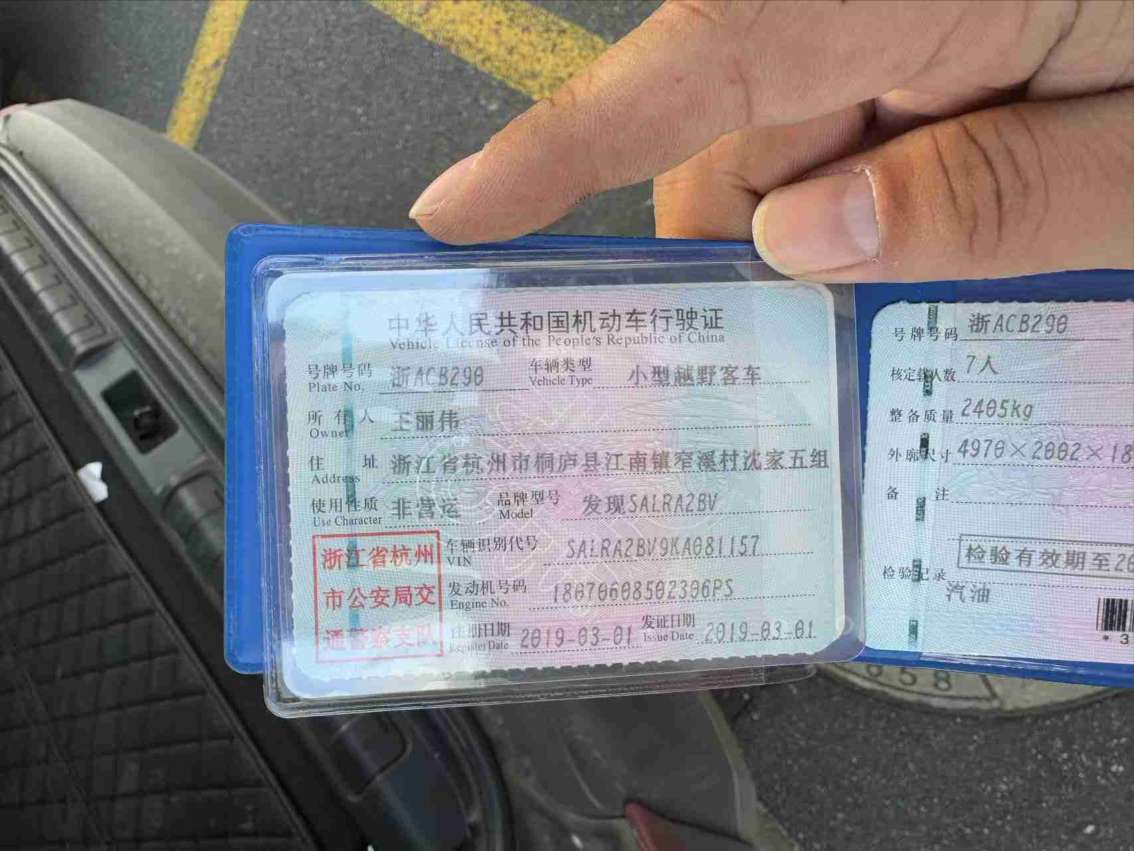 中华人民共和国机动车行驶证
Vehicle License of the People's Republic of China
号牌号码 浙ACB290 车辆类型 小型越野客车
Plate No. Vehicle Type
所有人 王丽伟
Owner
住址 浙江省杭州市桐庐县江南镇窄溪村沈家五组
Address
使用性质 非营运 品牌型号 发现SALRA2BV
Use Character Model
浙江省杭州
市公安局交
通警察支队
车辆识别代号 SALRA2BV9KA081157
VIN
发动机号码 18070608502306PS
Engine No.
注册日期 2019-03-01 发证日期 2019-03-01
Register Date Issue Date
号牌号码 浙ACB290
核定载人数 7人
整备质量 2405kg
外廓尺寸 4970×2002×18
备注
检验有效期至20
检验记录
汽油
*3
658